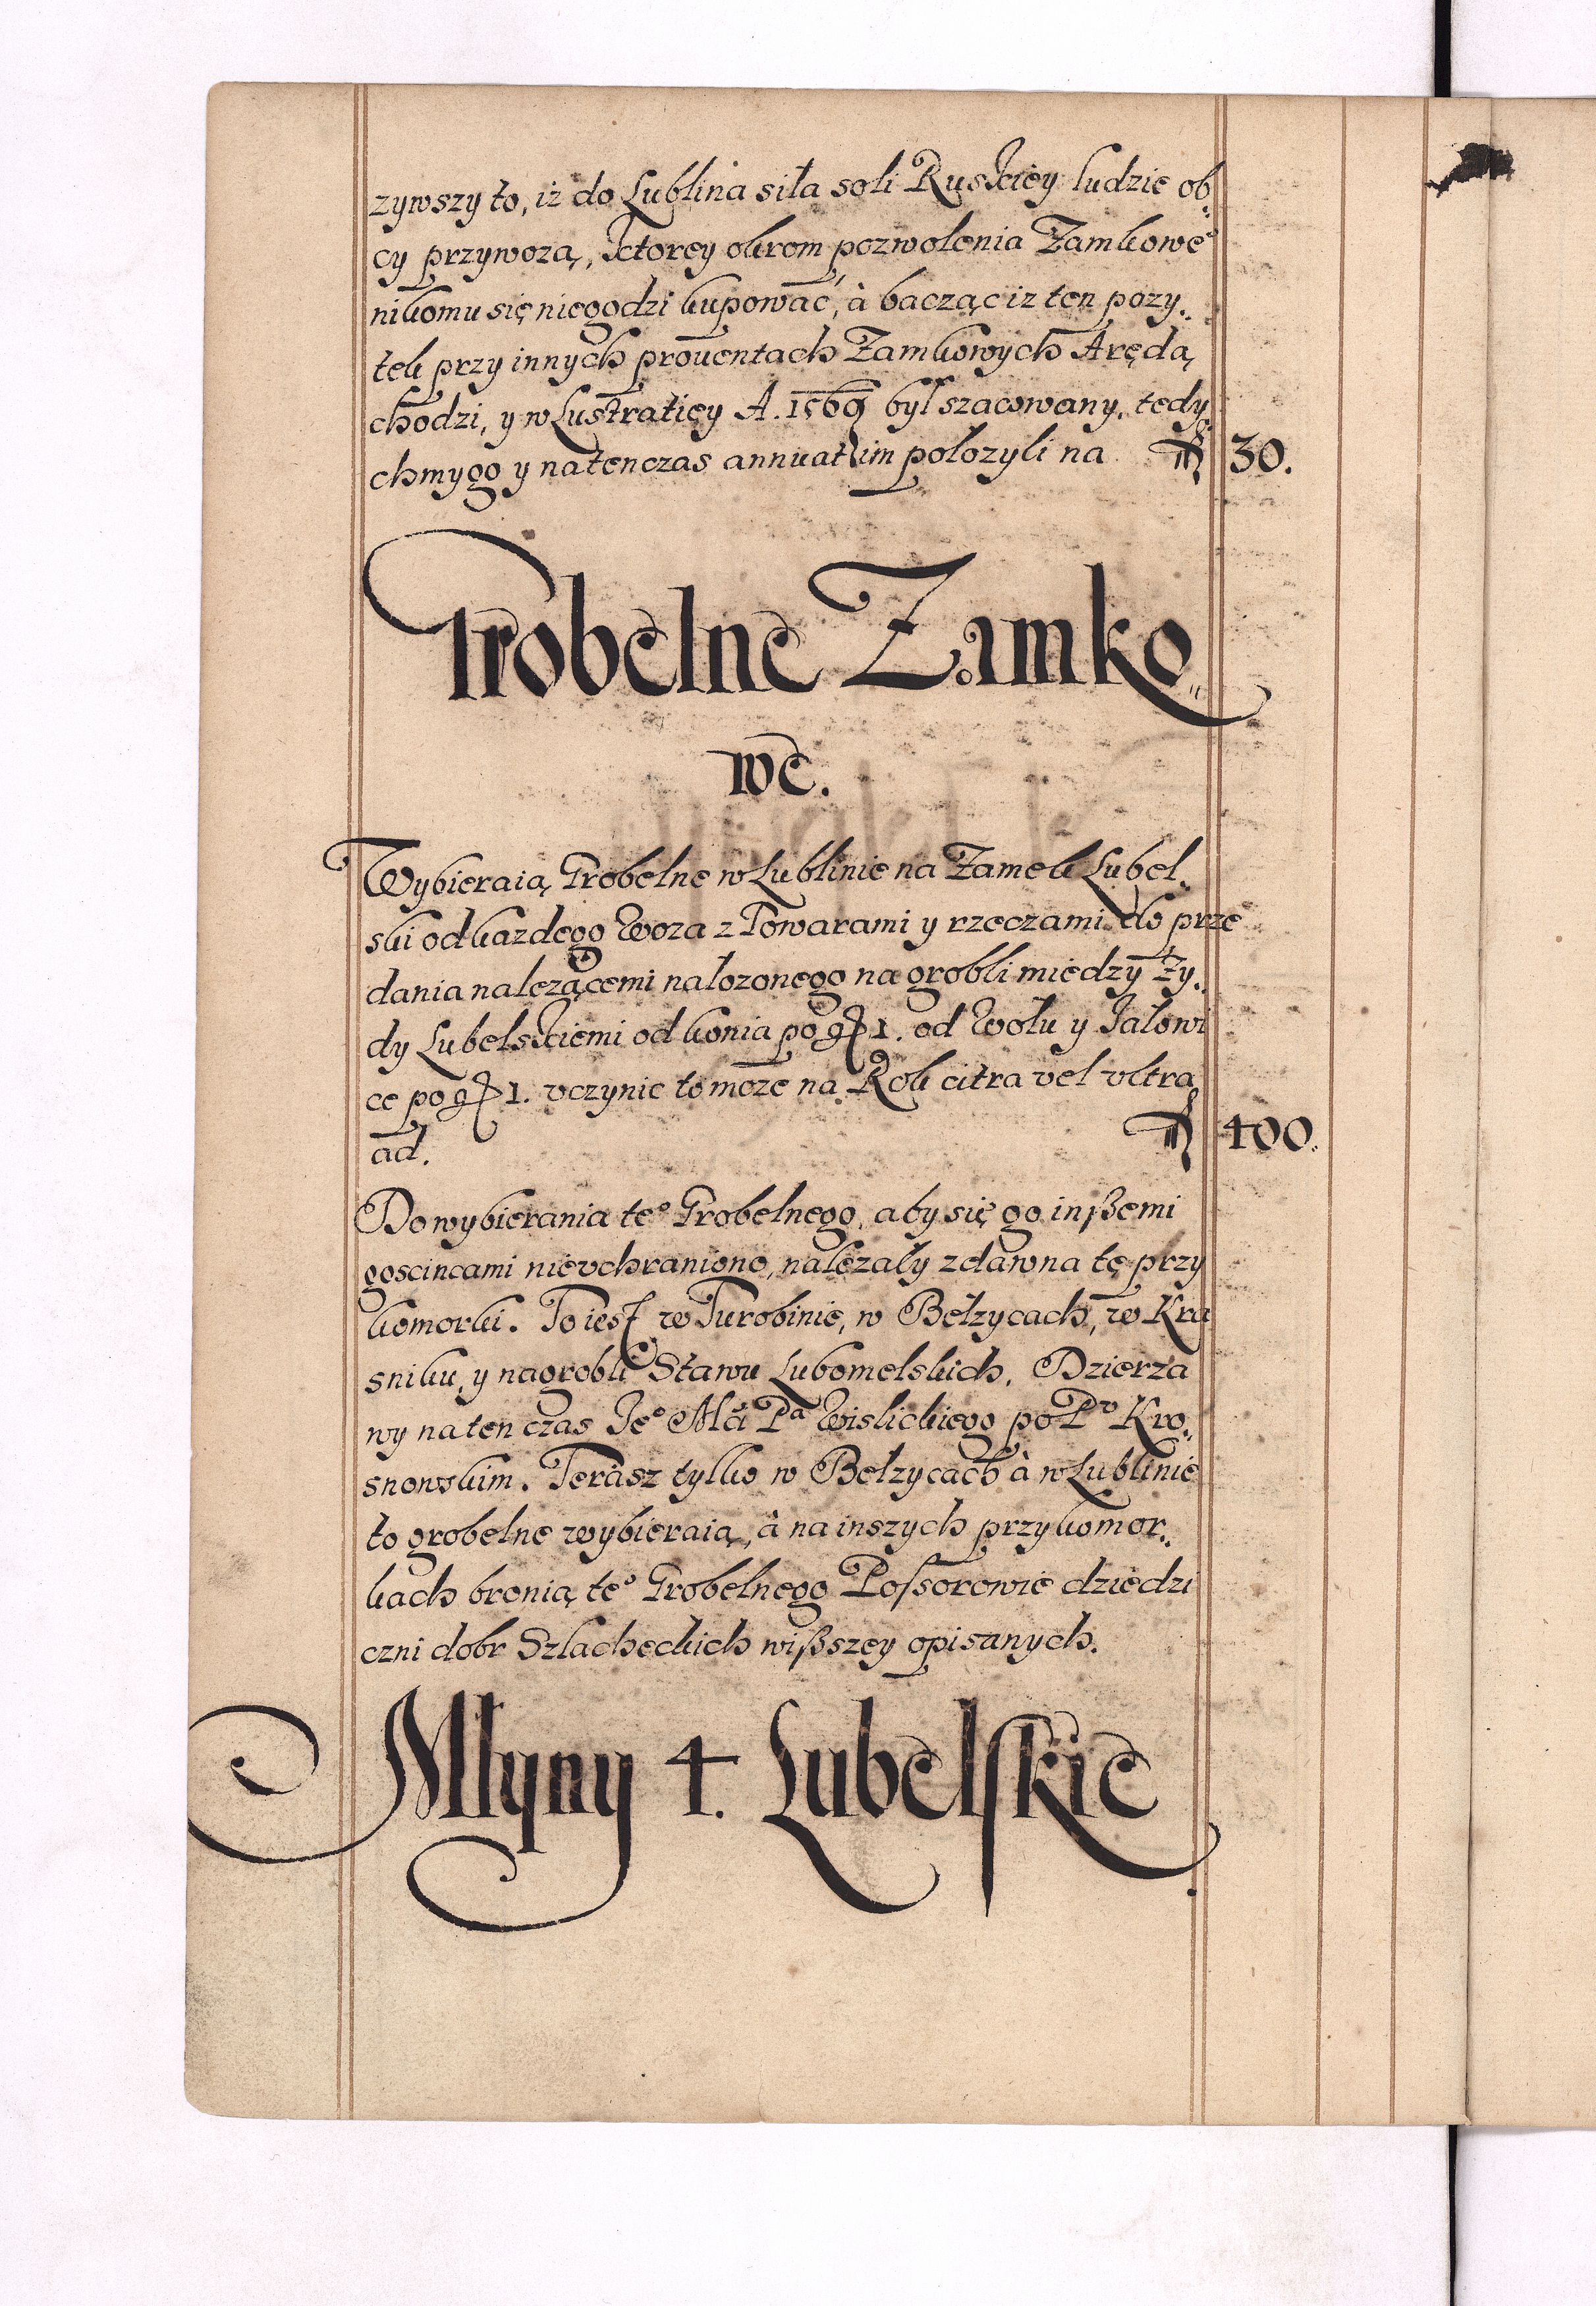 zywszy to, iż do Lublina siła soli Ruskiey ludzie ob:
cy przywozą, ktorey okrom pozwolenia Zamkowe°
nikomu się niegodzi kupować, à bacząc iz ten pozy:
tek przy innych prouentach Zamkowych Arędą
chodzi, y w Lustratiey A. 1569 był szacowany, tedy:
chmy go y natenczas annuatim połozyli na fl 30.
Grobelne Zamko„
we.
Wybieraią Grobelne w Lublinie na Zamek Lubel:
ski od kazdego woza z Towarami y rzeczami do prze
dania nalezącemi nałozonego na grobli miedzy Zy:
dy Lubelskiemi od konia po g 1. od Wołu y Jałowi
ce po g 1. vczynic to moze na Rok citra vel vltra
ad. fl 400.
Do wybierania te° Grobelnego, aby się go inßemi
goscincami nievchraniono, nalezały zdawna te przy
komorki. To iest w Turobinie, w Bełzycach, w Kra
sniku, y na grobli Stawu Lubomelskich. Dzierza
wy na ten czas Je° Mći Pa Wislickiego po Pu Kro„
snowskim. Terasz tylko w Bełzycach à w Lublinie
to grobelne wybieraią, à na inszych przykomor:
kach bronią te° Grobelnego Possorowie dziedzi
czni dobr Szlacheckich wißszey opisanych.
Młyny 4. Lubelskie.